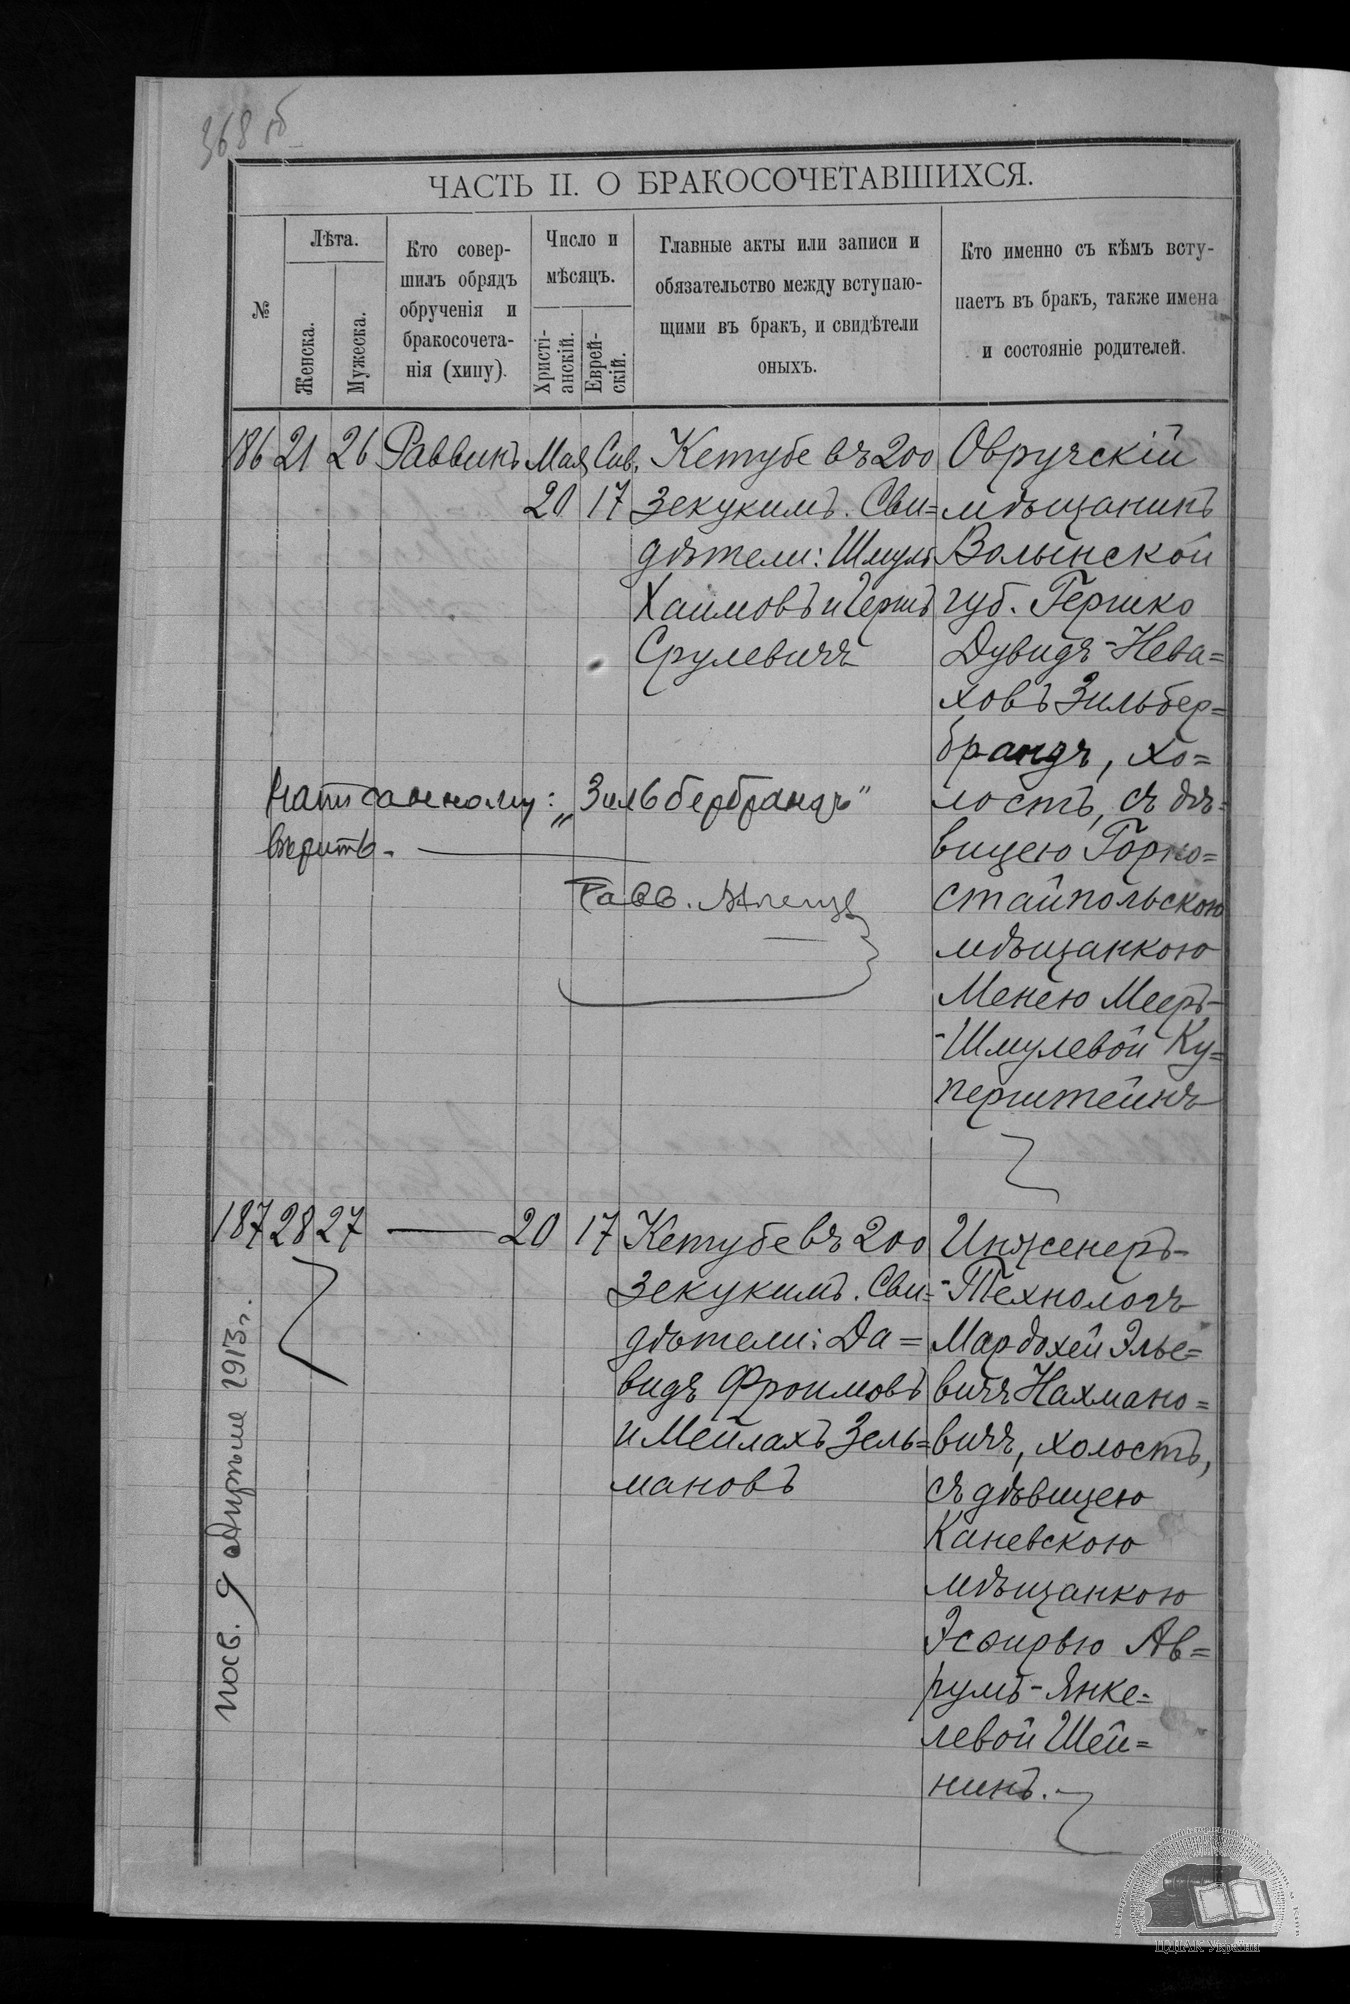 368 об
ЧАСТЬ II. О БРАКОСОЧЕТАВШИХСЯ.
№
Лѣта.
Женска.
Мужеска.
Кто совер-
шилъ обрядъ
обрученія и
бракосочета-
нія (хипу).
Число и
мѣсяцъ.
Христі-
анскій.
Еврей-
скій.
Главные акты или записи и
обязательство между вступаю-
щими въ бракъ, и свидѣтели
оныхъ.
Кто именно съ кѣмъ всту-
паетъ въ бракъ, также имена
и состояніе родителей.
186 21 26 Раввинъ Мая Сив.
20 17
Кетубе въ 200
Зекукимъ. Сви=
дѣтели: Шмуль
Хаимовъ и Гершъ
Срулевичъ
Овручскій
мѣщанинъ
Волынской
губ. Гершко
Дувидъ-Нева=
ховъ Зильбер=
брандъ, хо=
лостъ, съ дѣ=
вицею Горно=
стайпольскою
мѣщанкою
Менею Мееръ-
-Шмулевой Ку=
перштейнъ
Написанному: „Зильбербрандъ"
вѣрить.
Равв.
187 28 27 — 20 17
Кетубе въ 200
Зекукимъ. Сви=
дѣтели: Да=
видъ Фроимовъ
и Мейлахъ Зель=
мановъ
Инженеръ-
-Технологъ
Мардохей Элье=
вичъ Нахмано=
вичъ, холостъ,
съ дѣвицею
Каневскою
мѣщанкою
Эсѳирью Ав=
румъ-Янке=
левой Шей=
нинъ.
посв. 9 Апрѣля 1913 г.
ЦДІАК України